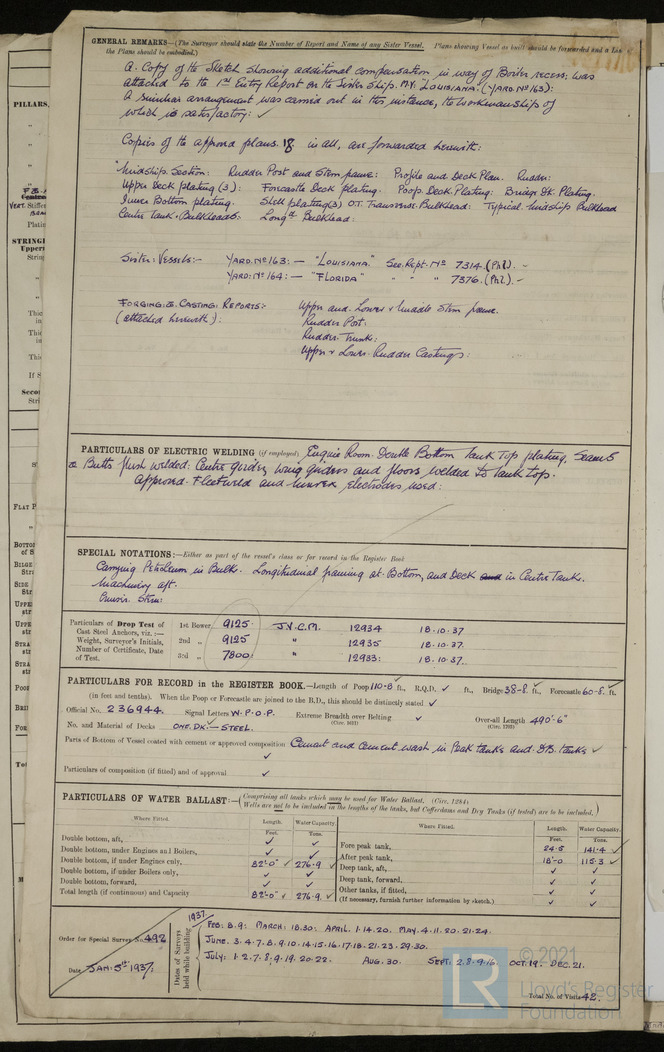 GENERAL REMARKS—(The Surveyor should state the Number of Report and Name of any Sister Vessel. Plans showing Vessel as built should be forwarded and a List of
the Plans should be embodied.)
A Copy of the Sketch showing additional compensation in way of Boiler recess: was
attached to the 1st Entry Report on the Sister Ship. M.V. "LOUISIANA": (YARD. No 163):
A similar arrangement was carried out in this instance, the workmanship of
which is satisfactory: ✓
Copies of the approved plans. 18 in all, are forwarded herewith:
Midship. Section: Rudder Post and Stern frame: Profile and Deck Plan. Rudder:
Upper Deck plating (3): Forecastle Deck plating. Poop. Deck. Plating: Bridge Dk. Plating.
Inner Bottom plating. Shell plating (3) O.T. Transverse. Bulkhead: Typical Midship Bulkhead
Centre Tank. Bulkheads: Longl Bulkhead:
Sister: Vessels:- YARD. No 163: — "LOUISIANA." See. Rept. No 7314. (Phl). -
YARD: No 164: — "FLORIDA" " " " 7376. (Phl). -
FORGING. & CASTING. REPORTS:- Upper and. Lower & Middle Stern frame.
(attached herewith): Rudder Post:
Rudder. Trunk:
Upper & Lower. Rudder Castings:
PARTICULARS OF ELECTRIC WELDING (if employed) Engine Room. Double Bottom Tank Top plating. Seams
& Butts flush welded: Centre girder, wing girders and floors welded to tank top.
Approved. Fleetweld and electrodes used:
SPECIAL NOTATIONS:—Either as part of the vessel's class or for record in the Register Book
Carrying Petroleum in Bulk. Longitudinal framing at Bottom, and Deck in Centre Tank.
Machinery aft.
Stem:
Particulars of Drop Test of
Cast Steel Anchors, viz.:—
Weight, Surveyor's Initials,
Number of Certificate, Date
of Test.
1st Bower 9125 J.V.C.M. 12934 18.10.37
2nd „ 9125 " 12935 18.10.37.
3rd „ 7800 " 12933: 18.10.37.
PARTICULARS FOR RECORD in the REGISTER BOOK.—Length of Poop 110.8 ft., R.Q.D. ✓ ft., Bridge 38.8 ft., Forecastle 60.8 ft.
(in feet and tenths). When the Poop or Forecastle are joined to the B.D., this should be distinctly stated ✓
Official No. 236944. Signal Letters W.P.O.P. Extreme Breadth over Belting ✓ Over-all Length 490'-6"
(Circ. 1611) (Circ. 1703)
No. and Material of Decks ONE. DK:— STEEL.
Parts of Bottom of Vessel coated with cement or approved composition Cement and cement wash in Peak tanks and. D.B. Tanks ✓
✓
Particulars of composition (if fitted) and of approval ✓
PARTICULARS OF WATER BALLAST:—(Comprising all tanks which may be used for Water Ballast. (Circ. 1284)
Wells are not to be included in the lengths of the tanks, but Cofferdams and Dry Tanks (if tested) are to be included.)
Where Fitted. Length. Water Capacity. Where Fitted. Length. Water Capacity.
Feet. Tons. Feet. Tons.
Double bottom, aft, ✓ ✓ Fore peak tank, 24.5 141.4 ✓
Double bottom, under Engines and Boilers, ✓ ✓ After peak tank, 18'-0 115.3 ✓
Double bottom, if under Engines only, 82'-0" ✓ 276.9 ✓ Deep tank, aft, ✓ ✓
Double bottom, if under Boilers only, ✓ ✓ Deep tank, forward, ✓ ✓
Double bottom, forward, ✓ ✓ Other tanks, if fitted, ✓ ✓
Total length (if continuous) and Capacity 82'-0" ✓ 276.9 ✓ (If necessary, furnish further information by sketch.) ✓ ✓
Order for Special Survey No. 492
Date JAN. 5th 1937.
Dates of Surveys
held while building
1937.
FEB. 8.9: MARCH: 18.30: APRIL. 1.14.20. MAY. 4.11.20.21.24.
JUNE. 3.4.7.8.9.10.14.15.16.17.18.21.23.29.30.
JULY: 1.2.7.8.9.19.20.22. AUG. 30. SEPT. 2.8.9.16. OCT. 19. DEC. 21.
Total No. of Visits 42.
PILLARS,
STRINGE
Upper
LR
© 2021
Lloyd's Register
Foundation